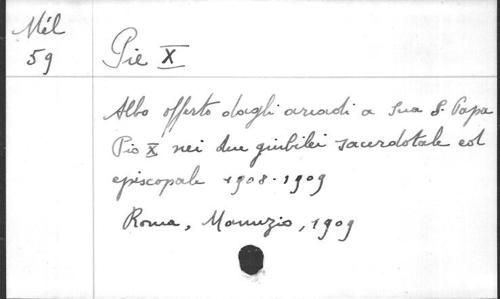 Mél
59
Pie X
Albo offerto dagli arcadi a sua S. Papa
Pio X nei due giubilei sacerdotale ed
episcopale 1908-1909
Roma, Manuzio, 1909